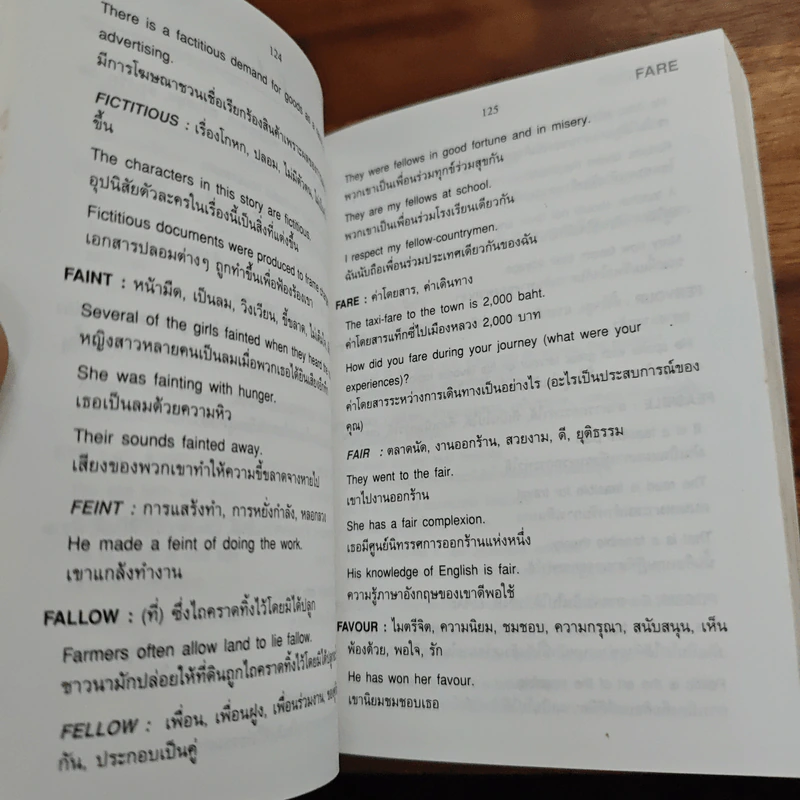 124
There is a factitious demand for goods as a
advertising.
มีการโฆษณาชวนเชื่อเรียกร้องสินค้าเพราะ
FICTITIOUS : เรื่องโกหก, ปลอม, ไม่มีตัวตน,
ขึ้น
The characters in this story are fictitious.
อุปนิสัยตัวละครในเรื่องนี้เป็นสิ่งที่แต่งขึ้น
Fictitious documents were produced to frame
เอกสารปลอมต่างๆ ถูกทำขึ้นเพื่อฟ้องร้องเขา
FAINT : หน้ามืด, เป็นลม, วิงเวียน, ขี้ขลาด,
Several of the girls fainted when they heard the
หญิงสาวหลายคนเป็นลมเมื่อพวกเธอได้ยินเสียง
She was fainting with hunger.
เธอเป็นลมด้วยความหิว
Their sounds fainted away.
เสียงของพวกเขาทำให้ความขี้ขลาดจางหายไป
FEINT : การแสร้งทำ, การหยั่งกำลัง, หลอกลวง
He made a feint of doing the work.
เขาแกล้งทำงาน
FALLOW : (ที่) ซึ่งไถคราดทิ้งไว้โดยมิได้ปลูก
Farmers often allow land to lie fallow.
ชาวนามักปล่อยให้ที่ดินถูกไถคราดทิ้งไว้โดยมิได้
FELLOW : เพื่อน, เพื่อนฝูง, เพื่อนร่วมงาน,
กัน, ประกอบเป็นคู่
FARE
125
They were fellows in good fortune and in misery.
พวกเขาเป็นเพื่อนร่วมทุกข์ร่วมสุขกัน
They are my fellows at school.
พวกเขาเป็นเพื่อนร่วมโรงเรียนเดียวกัน
I respect my fellow-countrymen.
ฉันนับถือเพื่อนร่วมประเทศเดียวกันของฉัน
FARE : ค่าโดยสาร, ค่าเดินทาง
The taxi-fare to the town is 2,000 baht.
ค่าโดยสารแท็กซี่ไปเมืองหลวง 2,000 บาท
How did you fare during your journey (what were your
experiences)?
ค่าโดยสารระหว่างการเดินทางเป็นอย่างไร (อะไรเป็นประสบการณ์ของ
คุณ)
FAIR : ตลาดนัด, งานออกร้าน, สวยงาม, ดี, ยุติธรรม
They went to the fair.
เขาไปงานออกร้าน
She has a fair complexion.
เธอมีศูนย์นิทรรศการออกร้านแห่งหนึ่ง
His knowledge of English is fair.
ความรู้ภาษาอังกฤษของเขาดีพอใช้
FAVOUR : ไมตรีจิต, ความนิยม, ชมชอบ, ความกรุณา, สนับสนุน, เห็น
พ้องด้วย, พอใจ, รัก
He has won her favour.
เขานิยมชมชอบเธอ